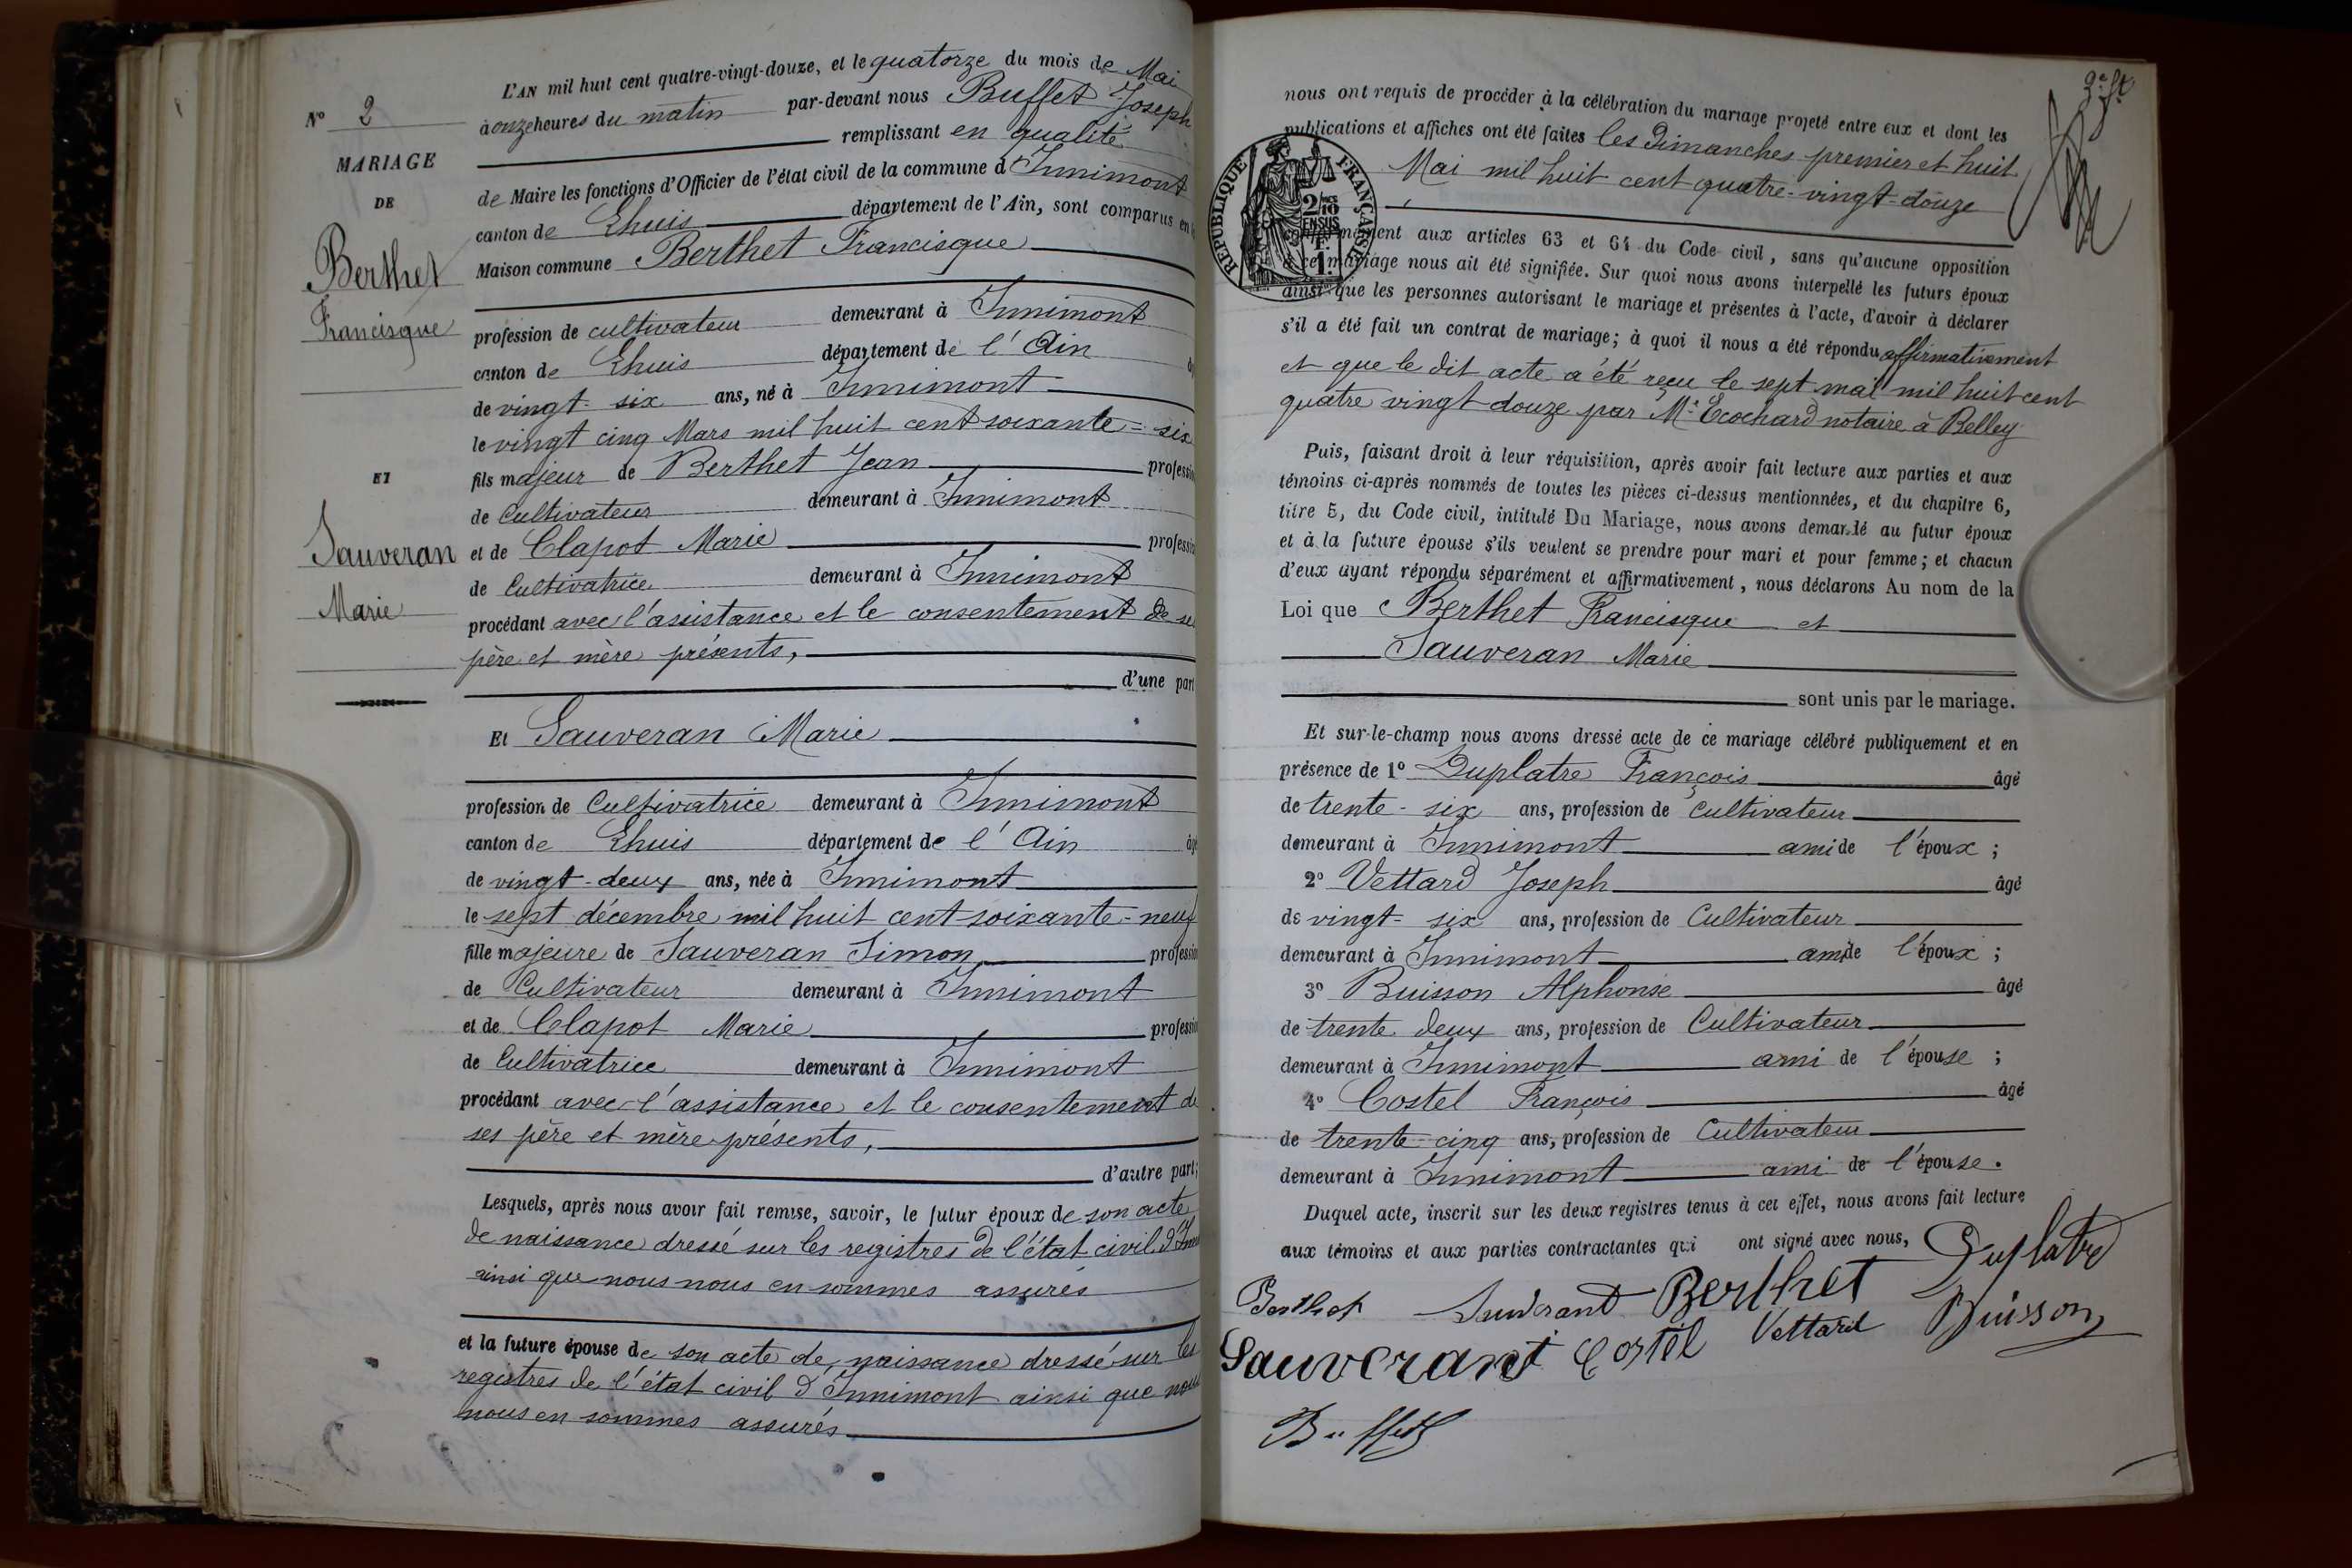 L'AN mil huit cent quatre-vingt-douze, et le quatorze du mois de Mai
N° 2
à onze heures du matin par-devant nous Buffet Joseph
remplissant en qualité
MARIAGE
DE
de Maire les fonctions d'Officier de l'état civil de la commune d'Innimont
canton de Lhuis département de l'Ain, sont comparus en
Maison commune Berthet Francisque
Berthet
Francisque
profession de cultivateur demeurant à Innimont
canton de Lhuis département de l'Ain
de vingt-six ans, né à Innimont
le vingt cinq Mars mil huit cent soixante=six
fils majeur de Berthet Jean profession
ET
de Cultivateur demeurant à Innimont
Sauveran
Marie
et de Clapot Marie profession
de Cultivatrice demeurant à Innimont
procédant avec l'assistance et le consentement de ses
père et mère présents,
d'une part
Et Sauveran Marie
profession de Cultivatrice demeurant à Innimont
canton de Lhuis département de l'Ain âgé
de vingt-deux ans, née à Innimont
le sept décembre mil huit cent soixante=neuf
fille majeure de Sauveran Simon profession
de Cultivateur demeurant à Innimont
et de Clapot Marie profession
de Cultivatrice demeurant à Innimont
procédant avec l'assistance et le consentement de
ses père et mère présents,
d'autre part;
Lesquels, après nous avoir fait remise, savoir, le futur époux de son acte
de naissance dressé sur les registres de l'état civil
ainsi que nous nous en sommes assurés
et la future épouse de son acte de naissance dressé sur les
registres de l'état civil d'Innimont ainsi que nous
nous en sommes assurés
nous ont requis de procéder à la célébration du mariage projeté entre eux et dont les
publications et affiches ont été faites les Dimanches premier et huit
Mai mil huit cent quatre-vingt-douze
RÉPUBLIQUE FRANÇAISE
2/10 EN SUS
1 F.
conformément aux articles 63 et 64 du Code civil, sans qu'aucune opposition
à ce mariage nous ait été signifiée. Sur quoi nous avons interpellé les futurs époux
ainsi que les personnes autorisant le mariage et présentes à l'acte, d'avoir à déclarer
s'il a été fait un contrat de mariage; à quoi il nous a été répondu affirmativement
et que le dit acte a été reçu le sept mai mil huit cent
quatre vingt douze par Me Ecochard notaire à Belley
Puis, faisant droit à leur réquisition, après avoir fait lecture aux parties et aux
témoins ci-après nommés de toutes les pièces ci-dessus mentionnées, et du chapitre 6,
titre 5, du Code civil, intitulé Du Mariage, nous avons demandé au futur époux
et à la future épouse s'ils veulent se prendre pour mari et pour femme; et chacun
d'eux ayant répondu séparément et affirmativement, nous déclarons Au nom de la
Loi que Berthet Francisque et
Sauveran Marie
sont unis par le mariage.
Et sur-le-champ nous avons dressé acte de ce mariage célébré publiquement et en
présence de 1° Duplatre François âgé
de trente-six ans, profession de Cultivateur
demeurant à Innimont ami de l'époux;
2° Vettard Joseph âgé
de vingt-six ans, profession de Cultivateur
demeurant à Innimont ami de l'époux;
3° Buisson Alphonse âgé
de trente deux ans, profession de Cultivateur
demeurant à Innimont ami de l'épouse;
4° Costel François âgé
de trente-cinq ans, profession de Cultivateur
demeurant à Innimont ami de l'épouse.
Duquel acte, inscrit sur les deux registres tenus à cet effet, nous avons fait lecture
aux témoins et aux parties contractantes qui ont signé avec nous,
Duplatre
Berthet Sauverant Berthet
Buisson
Sauverant Costel Vettard
Buffet